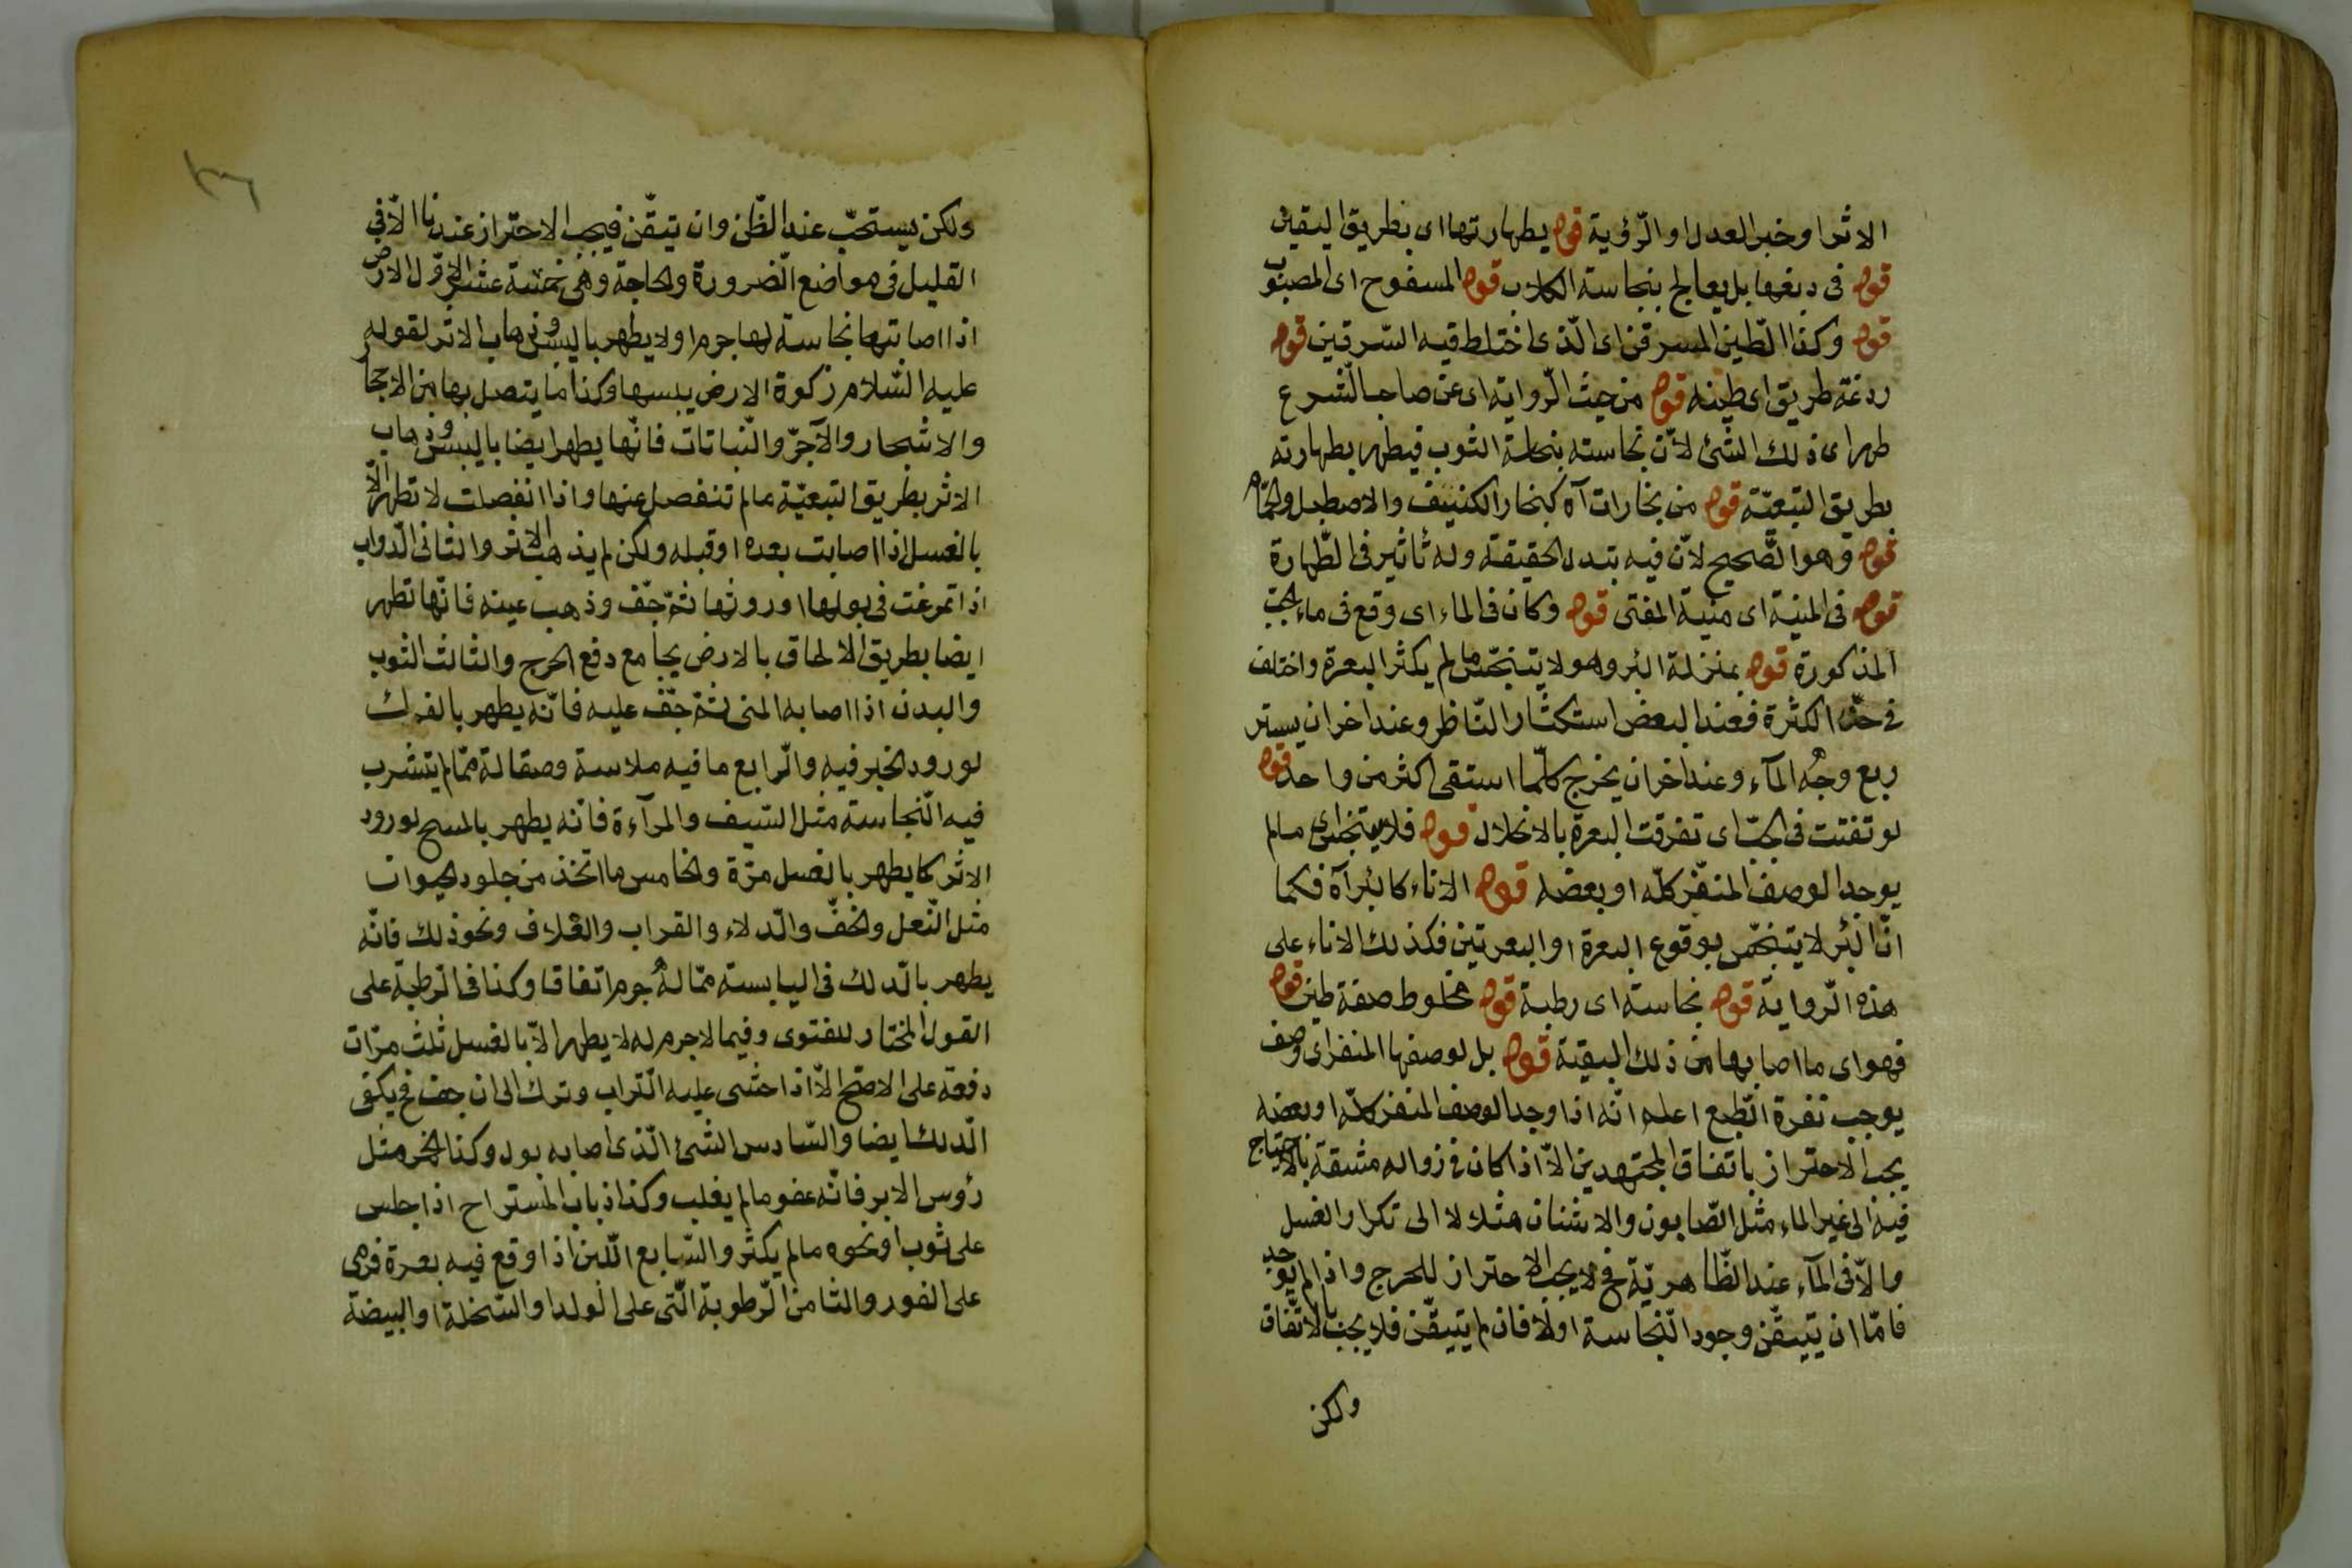 الاثر او خبر العدل او الرّؤية قوله بطهارتها اى بطريق اليقين
قوله فى دبغها بل يعالج بنجاسة الكلاب قوله المسفوح اى المصبوب
قوله وكذا الطّين المسرقن اى الّذى اختلط فيه السّرقين قوله
ردغة طريق اى طينه قوله من حيث الرّواية اى عن صاحب الشّرع
طهر اى ذلك الشّئ لأنّ نجاسته بنجاسة الثوب فيطهر بطهارته
بطريق التبعيّة قوله من بخارات آه كبخار الكنيف والاصطبل والحمّام
قوله وهو الصّحيح لانّ فيه تبدل الحقيقة وله تأثير فى الطّهارة
قوله فى المنية اى منية المفتى قوله وكان فى الماء اى وقع فى ماء الجبّ
المذكورة قوله بمنزلة البئر وهو لا يتنجّس ما لم يكثر البعرة واختلف
فى حدّ الكثرة فعند البعض استكثار النّاظر وعند اخر ان يستر
ربع وجه المآء وعند اخر ان يخرج كلّما استقى اكثر من واحد قوله
لو تفتت فى الجبّ اى تفرقت البعرة بالانحلال قوله فلا يتنجّس اى ما لم
يوجد الوصف المنفّر كلّه او بعضه قوله الاناء كالبئر آه فكما
انّ البئر لا يتنجّس بوقوع البعرة او البعرتين فكذلك الاناء على
هذه الرّواية قوله نجاسة اى رطبة قوله مخلوط صفة طين قوله
فهو اى ما اصابها من ذلك البقية قوله بل لوصفها المنفر اى وصف
يوجب نفرة الطّبع اعلم انّه اذا وجد الوصف المنفر كلّه او بعضه
يجب الاحتراز باتفاق المجتهدين الّا اذا كان فى زواله مشقة بالاحتياج
فيه الى غير الماء مثل الصّابون والاشنان مثلا لا الى تكرار الغسل
والّا فى المآء عند الظّاهريّة فح لا يجب الاحتراز للحرج واذا لم يوجد
فامّا ان تيقّن وجود النّجاسة اولا فان لم يتيقّن فلا يجب بالاتّفاق
ولكن
ولكن يستحبّ عند الظّن وان تيقّن فيجب الاحتراز عندنا الّا فى
القليل فى مواضع الضّرورة والحاجة وهى خمسة عشر الاوّل الارض
اذا اصابتها نجاسة لها جرم اولا يطهر باليبس وذهاب الاثر لقوله
عليه السّلام زكوة الارض يبسها وكذا ما يتصل بها من الاحجار
والاشجار والآجرّ والنّباتات فانّها يطهر ايضا باليبس وذهاب
الاثر بطريق التبعيّة ما لم تنفصل عنها واذا انفصلت لا تطهر الّا
بالغسل اذا اصابت بعده او قبله ولكن لم يذهب الاثر والثانى الدّواب
اذا تمرغت فى بولها او روثها ثمّ جّف وذهب عينه فانّها تطهر
ايضا بطريق الالحاق بالارض بجامع دفع الحرج والثالث الثوب
والبدن اذا اصابه المنى ثمّ جّف عليه فانّه يطهر بالفرك
لورود الخبر فيه والرّابع ما فيه ملاسة وصقالة ممّا لم يتشرب
فيه النّجاسة مثل السّيف والمرآءة فانه يطهر بالمسح لورود
الاثر كما يطهر بالغسل مرّة والخامس ما اتخذ من جلود الحيوان
مثل النّعل والخفّ والدّلاء والقراب والغلاف ونحو ذلك فانّه
يطهر بالدّلك فى اليابسة ممّا له جرم اتفاقا وكذا فى الرّطبة على
القول المختار للفتوى وفيما لا جرم له لا يطهر الّا بالغسل ثلث مرّات
دفعة على الاصّح الّا اذا حثى عليه التّراب وترك الى ان جف فح يكفى
الدّلك ايضا والسّادس الشّئ الّذى اصابه بول وكذا الخمر مثل
رؤس الابر فانّه عفو ما لم يغلب وكذا ذباب المستراح اذا جلس
على ثوب او نحوه ما لم يكثر والسّابع اللّبن اذا وقع فيه بعرة فرمى
على الفور والثامن الرّطوبة الّتى على الولد او السّخلة او البيضة